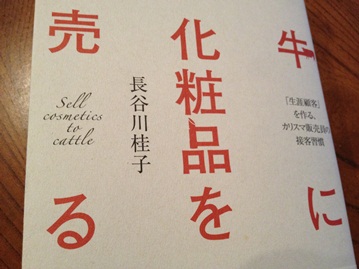 牛に
「生涯顧客」
を作る、
カリスマ販売員の
接客習慣
化粧品を
長谷川桂子
売る
Sell
cosmetics
to
cattle